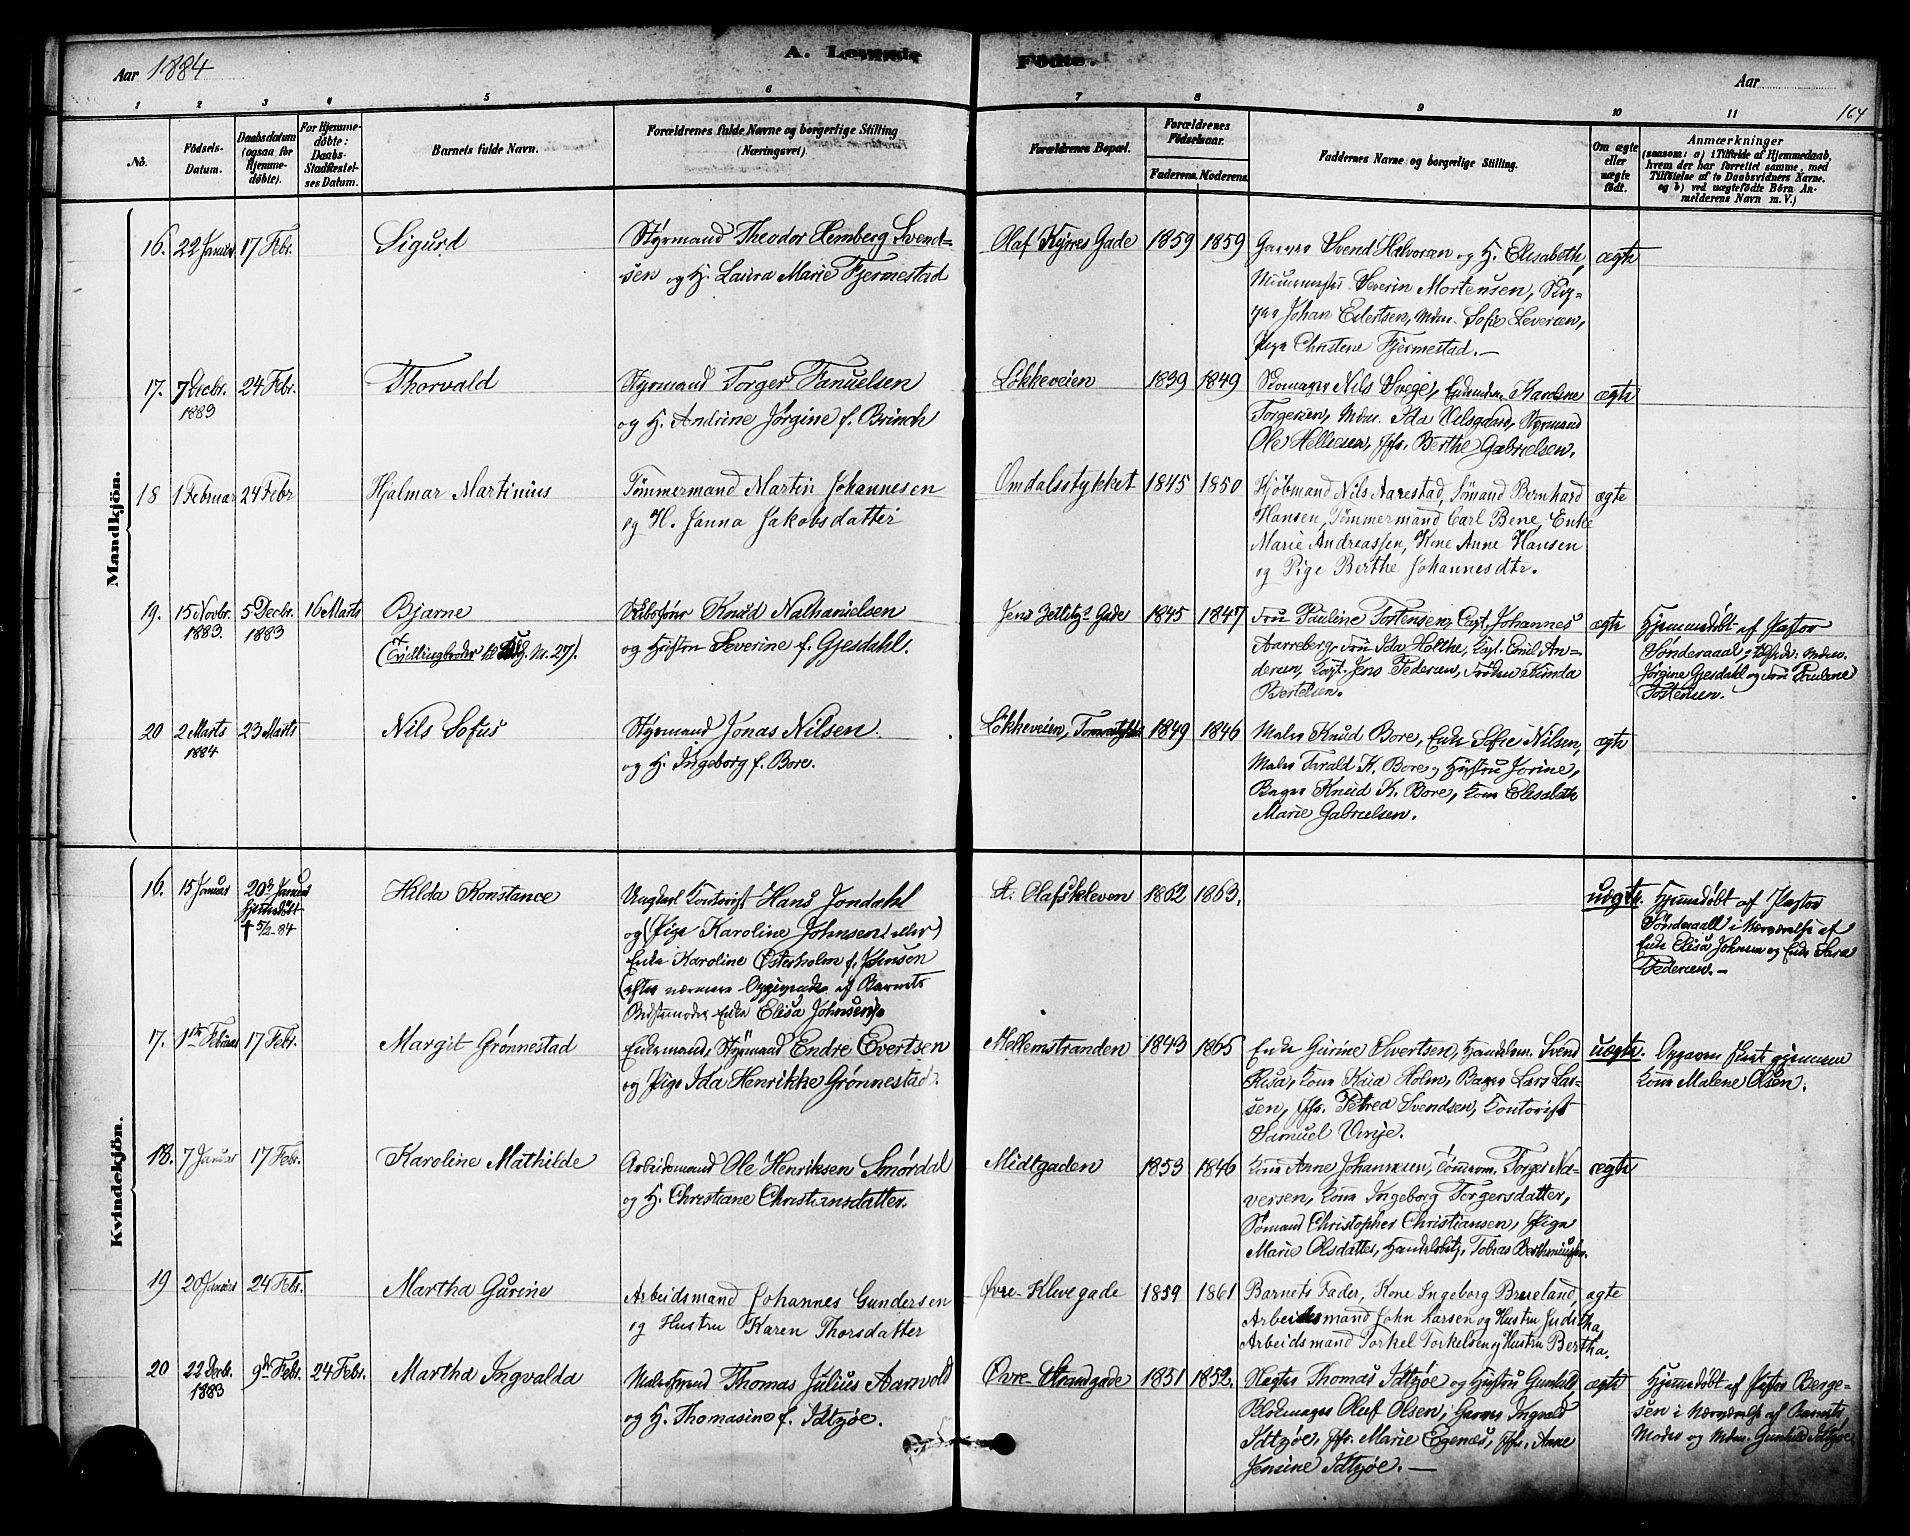 Aar 1884
A. Levende
Födte.
Aar
164
1 2 3 4 5 6 7 8 9 10 11
No.
Födsels-
Datum.
Daabsdatum
(ogsaa for
Hjemme-
döbte).
For Hjemme-
döbte:
Daabs-
Stadfæstel-
ses Datum.
Barnets fulde Navn.
Forældrenes fulde Navne og borgerlige Stilling
(Næringsvei).
Forældrenes Bopæl.
Forældrenes
Födselsaar.
Faderens. Moderens.
Faddernes Navne og borgerlige Stilling.
Om ægte
eller
uægte
födt.
Anmærkninger
(saasom: a) i Tilfælde af Hjemmedaab,
hvem der har forrettet samme, med
Tilföielse af to Daabsvidners Navne.
og b) ved uægtefödte Börn An-
melderens Navn m. V.)
Mandkjön.
16. 22 Januar 17 Febr. Sigurd
Styrmand Theodor Hemberg Svend-
sen og H. Laura Marie Fjermestad
Olaf Kyrres Gade 1859 1859
Garver Svend Halvorsen og H. Elisabeth,
Severin Mortensen,
Johan Eilertsen, Mdm. Sofie Severeen,
Pige Christene Fjermestad.—
ægte
17. 7 Decbr. 24 Febr. Thorvald
1883
Styrmand Torger Fanuelsen
og H. Andrine Jörgine f. Brinch
Lökkeveien 1839 1849
Skomager Nils Svege, Karoline
Torgersen, Mdm. Ida Nilsgaard, Styrmand
Ole Hellesen, Jfr. Berthe Gabrielsen.
ægte
18 1 Februar 24 Febr Hjalmar Martinius
Tömmermand Martin Johannesen
og H. Janna Jakobsdatter
Omdalsstykket 1845 1850
Kjöbmand Nils Aarestad, Sömand Bernhard
Hansen, Tömmermand Carl Bene, Enke
Marie Andreassen, Kone Anne Hansen
og Pige Berthe Johannesdtr.
ægte
19. 15 Novbr. 5 Decbr. 16 Marts Bjarne
1883. 1883
(Tvillingbroder N. 27).
Skibsförer Knud Nathanielsen
og Hustru Severine f. Gjesdahl.
Jens Zetlitz's Gade 1845 1847
Fru Pauline Tostensen, Capt. Johannes
Aarreberg, Fru Ida Holthe, Capt. Emil An-
dersen, Capt. Jens Pedersen, Fröken
Bertelsen.
ægte
Hjemmedöbt af Pastor
Sönderaal: Mdm.
Jörgine Gjesdahl og Fru Pauline
Tostensen.
20 2 Marts 23 Marts Nils Sofus
1884
Styrmand Jonas Nilsen.
og H. Ingeborg f. Bore.
Lökkeveien, 1849 1846
Maler Knud Bore, Enke Sofie Nilsen,
Maler Tarald K. Bore og Hustru Jorine,
Bager Knud K. Bore, Kone Elisabeth
Marie Gabrielsen.
ægte
Kvindekjön.
16. 15 Januar 20de Januar Hilda Konstance
hjemmedöbt
† 5/2-84
Ungkarl Kontorist Hans Jondahl
og (Pige Karoline Johnsen) eller)
Enke Karoline Österholm f. Johnsen
(efter nærmere Opgivende af Barnets
Bedstemoder Enke Elisa Johnsen)
St. Olafskleven 1862 1863.
uægte.
Hjemmedöbt af Pastor
Sönderaall i Nærværelse af
Enke Elisa Johnsen og Enke Sara
Pedersen.—
17. 1ste Februar 17 Febr. Margit Grönnestad
Enkemand, Styrmand Endre Evertsen
og Pige Ida Henrikke Grönnestad.
Mellemstranden 1843 1865
Enke Gurine Sivertsen, Handelsm. Svend
Risa, Kone Kaia Holm, Bager Lars Lar-
sen, Jfr. Petrea Svendsen, Kontorist
Samuel Vinje.
uægte.
Opgaven skeet gjennem
Kone Malene Olsen.
18. 7 Januar 17 Febr. Karoline Mathilde
Arbeidsmand Ole Henriksen Smördal
og H. Christiane Christiansdatter.
Midtgaden 1853 1846
Kone Anne Johannesen, Torger Na-
versen, Kone Ingeborg Torgersdatter,
Sömand Christopher Christiansen, Pige
Marie Olsdatter, Tobias
ægte
19 20 Januar 24 Febr. Martha Gurine
Arbeidsmand Johannes Gundersen
og Hustru Karen Thorsdatter
Øvre Klevegade 1859 1861
Barnets Fader, Kone Ingeborg Brueland,
Arbeidsmand John Larsen og Hustru Juditha,
Arbeidsmand Torkel Torkelsen og Hustru Bertha.
ægte
20 22 Decbr. 9de Febr. 24 Febr. Martha Ingvalda
1883
Malersvend Thomas Julius Aarvold
og H. Thomasine f. Idtzöe.
Øvre Strandgade 1851 1852.
Thomas Idtzöe og Hustru Gunhild,
Blokmager Oluf Olsen, Garver Ingvald
Idtzöe, Jfr. Marie Egenæs, Jfr. Anne
Jensine Idtzöe.—
ægte
Hjemmedöbt af Pastor Berge-
sen i Nærværelse af Barnets
Moder og Mdm. Gunhild Idtzöe.